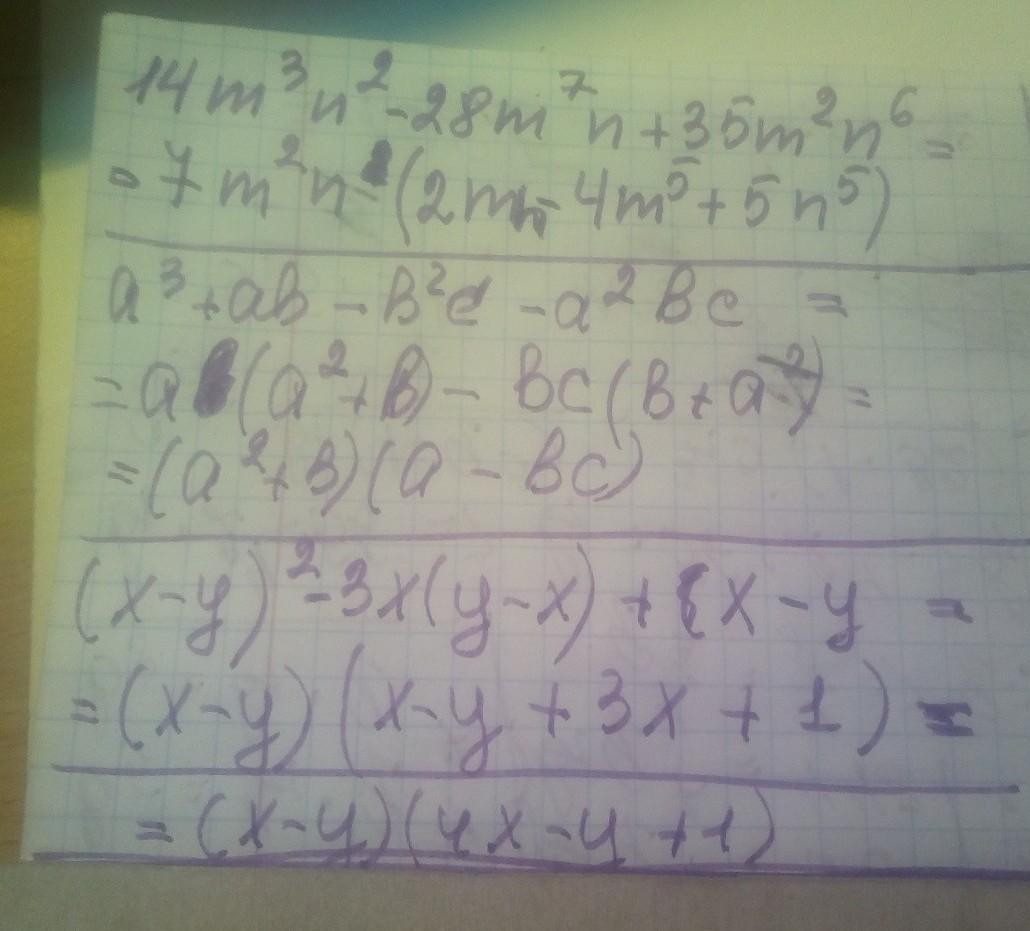 14m³n² - 28m⁷n + 35m²n⁶ =
= 7m²n (2mn - 4m⁵ + 5n⁵)
a³ + ab - b²c - a²bc =
= a (a² + b) - bc (b + a²) =
= (a² + b)(a - bc)
(x - y)² - 3x(y - x) + x - y =
= (x - y) (x - y + 3x + 1) =
= (x - y)(4x - y + 1)